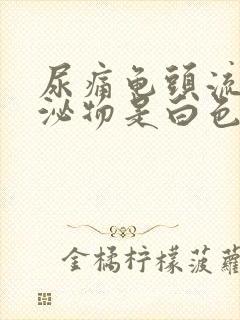 尿痛龟頭流
泌物是白色
金橘柠檬菠蘿